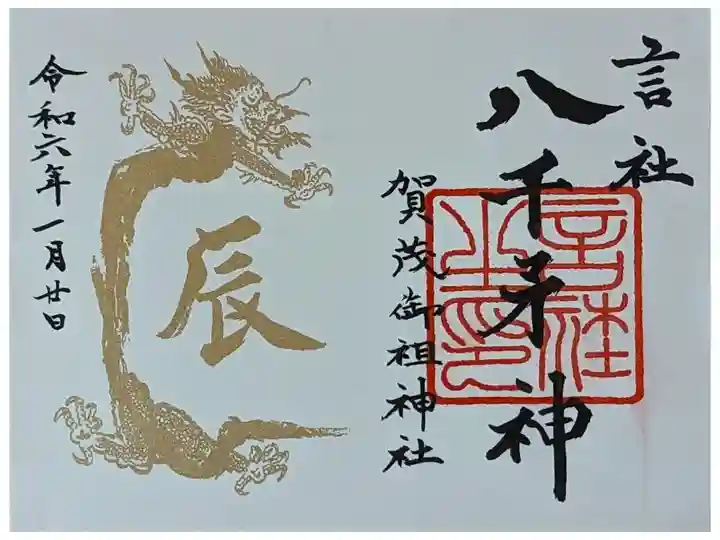 言社
八千矛神
賀茂御祖神社
言社之印
辰
令和六年一月廿日